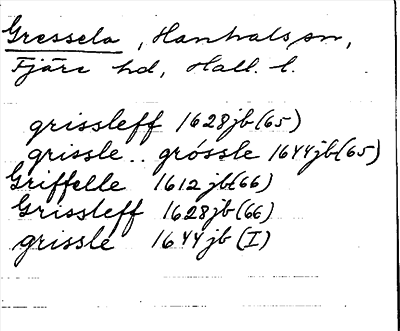 Gressela, Hanhals sn,
Fjäre hd, Hall. l.
grissleff 1628 jb (65)
grissle .. grössle 1644 jb (65)
Griffelle 1612 jb (66)
Grissleff 1628 jb (66)
grissle 1644 jb (I)